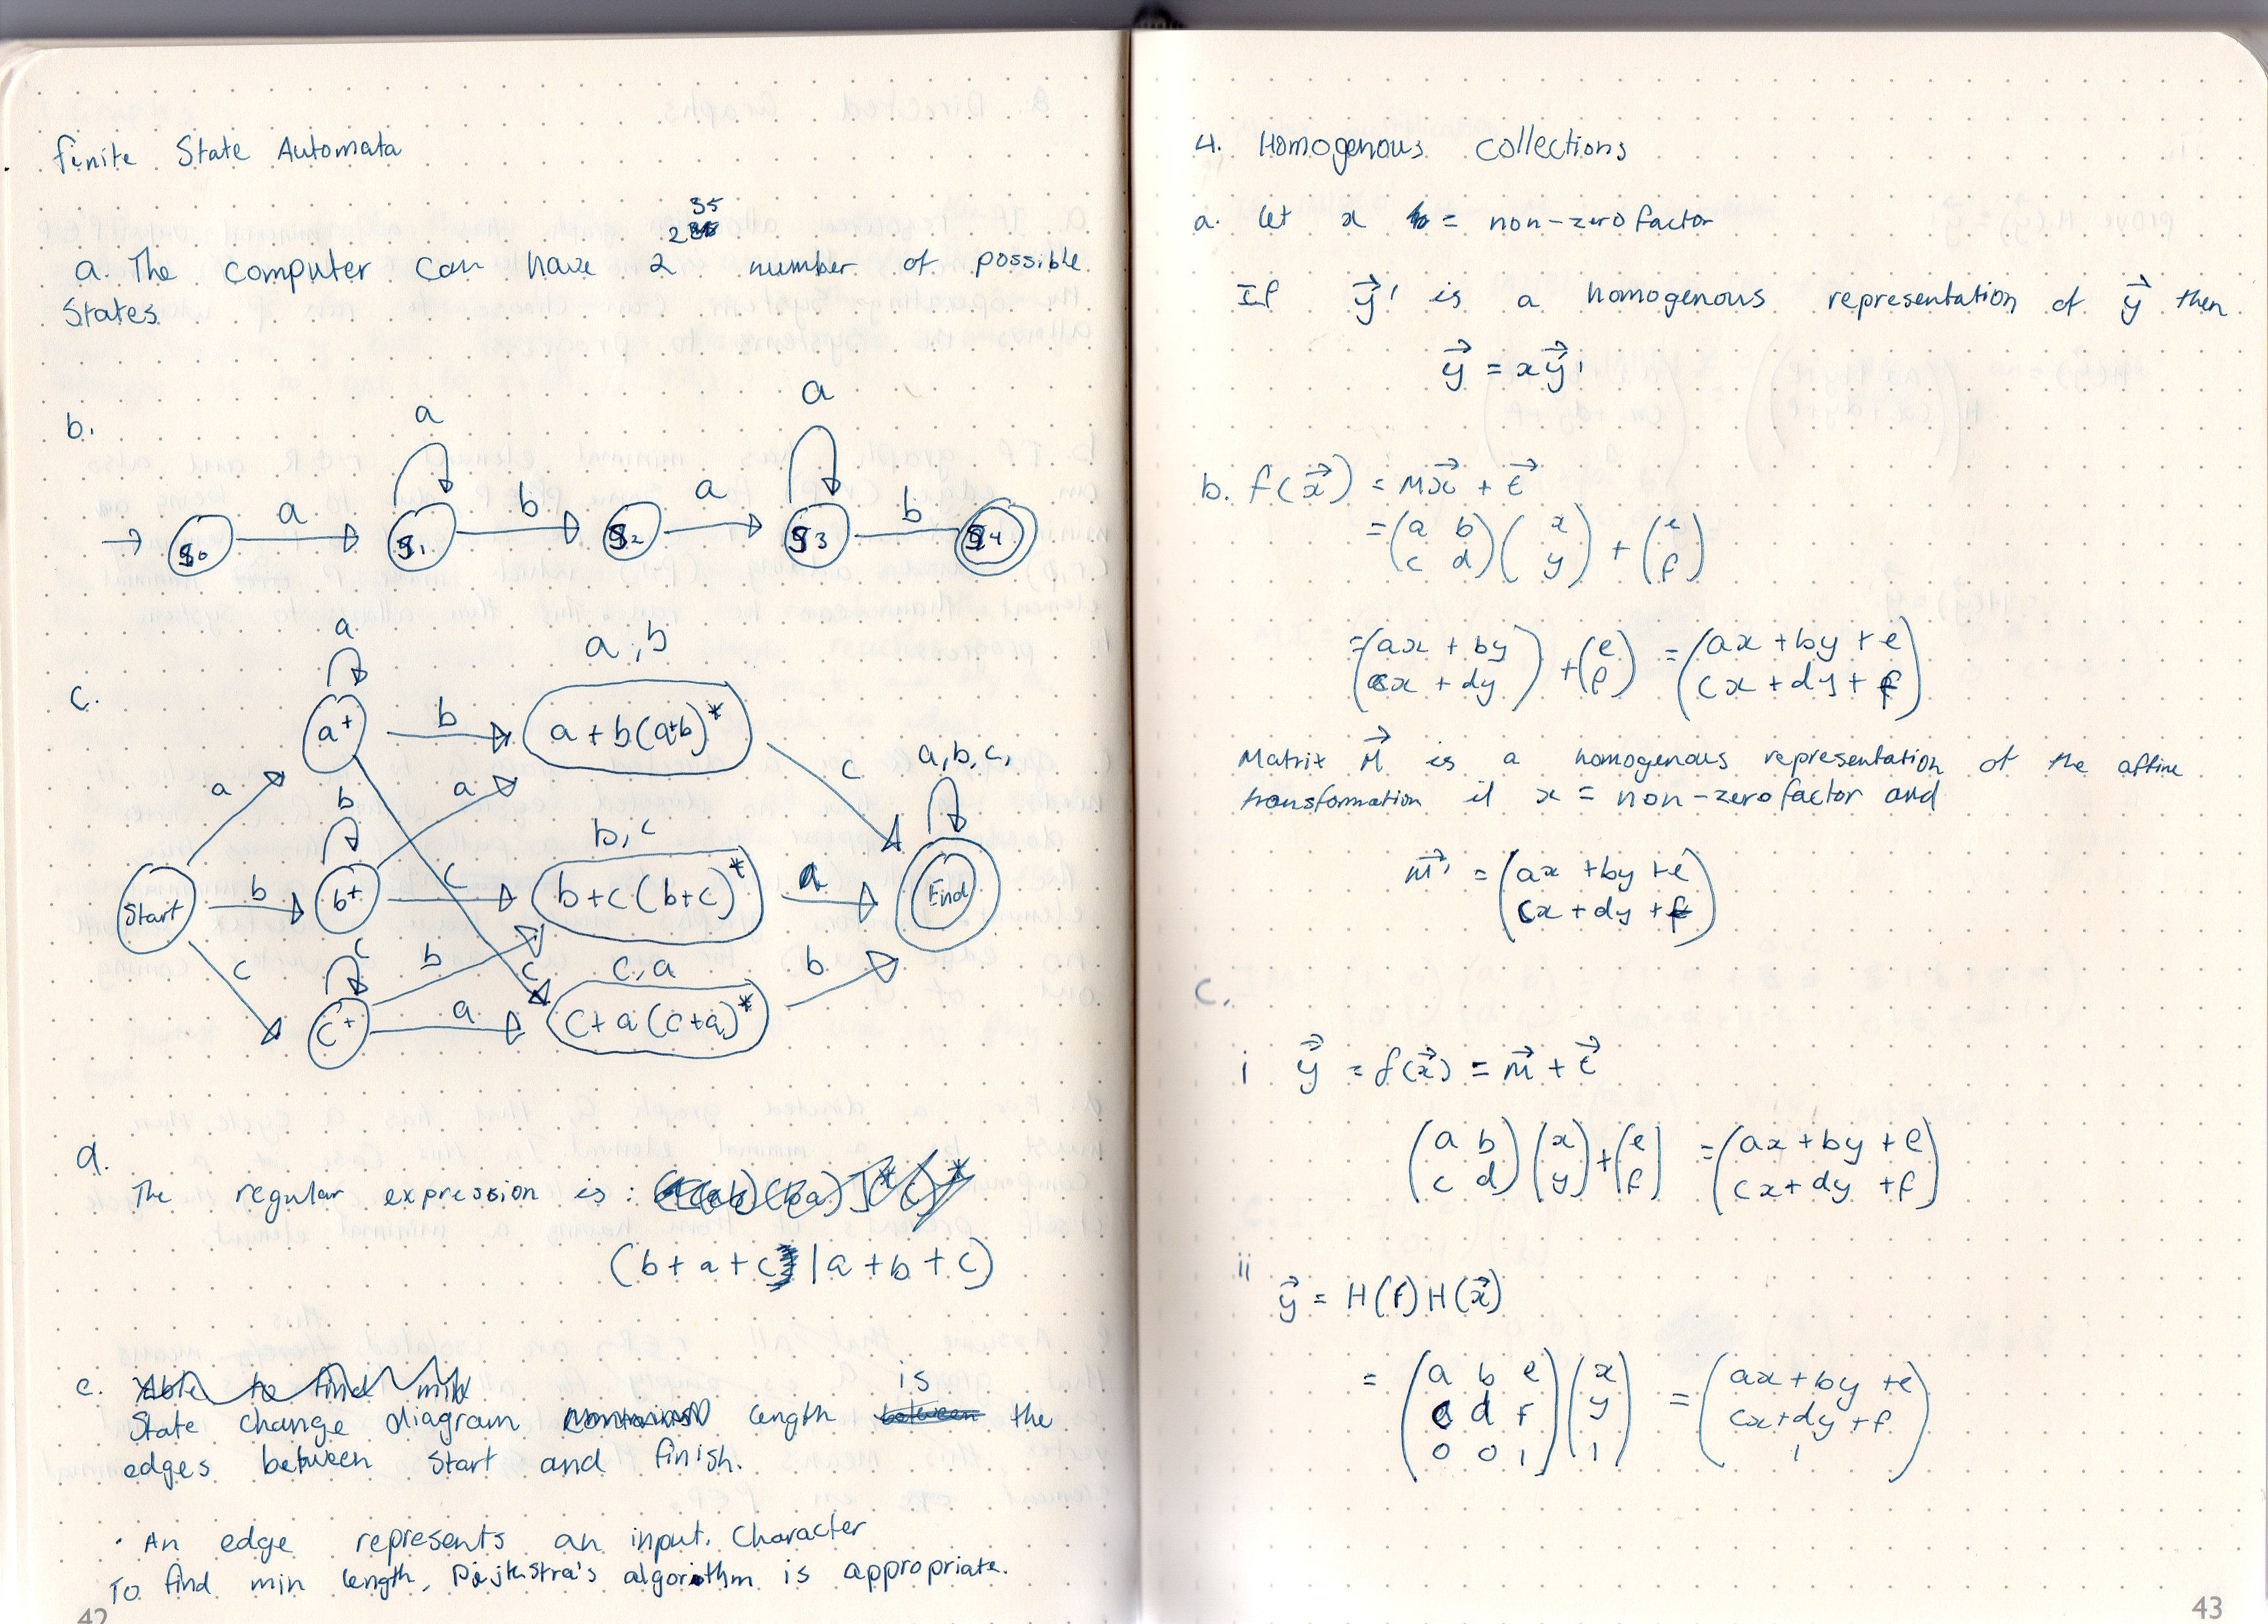 finite State Automata
35
2
a. The computer can have 2 number of possible
States.
b.
a a
a b a b
g0 g1 g2 g3 g4
c.
a a,b
a+ b a+b(a+b)*
a b a c a,b,c,
b,c
Start b b+ c b+c(b+c)* a End
c c b c c,a b
c+ a c+a(c+a)*
d.
The regular expression is :
(b+a+c | a+b+c)
e.
State change diagram length is the
edges between Start and finish.
· An edge represents an input. Character
To find min length, Dijkstra's algorithm is appropriate.
42
4. Homogenous collections
a. let x = non-zero factor
If y⃗' is a homogenous representation of y⃗ then
y⃗ = xy⃗'
b. f(x⃗) = Mx⃗ + t⃗
= (a b) (x) + (e)
(c d) (y) (f)
= (ax + by) + (e) = (ax + by + e)
(cx + dy) (f) (cx + dy + f)
Matrix M⃗ is a homogenous representation of the affine
transformation if x = non-zero factor and
m⃗' = (ax + by + e)
(cx + dy + f)
c.
i y⃗ = f(x⃗) = m⃗ + t⃗
(a b) (x) + (e) = (ax + by + e)
(c d) (y) (f) (cx + dy + f)
ii
y⃗ = H(f) H(x⃗)
= (a b e) (x) = (ax + by + e)
(c d f) (y) (cx + dy + f)
(0 0 1) (1) (1)
43